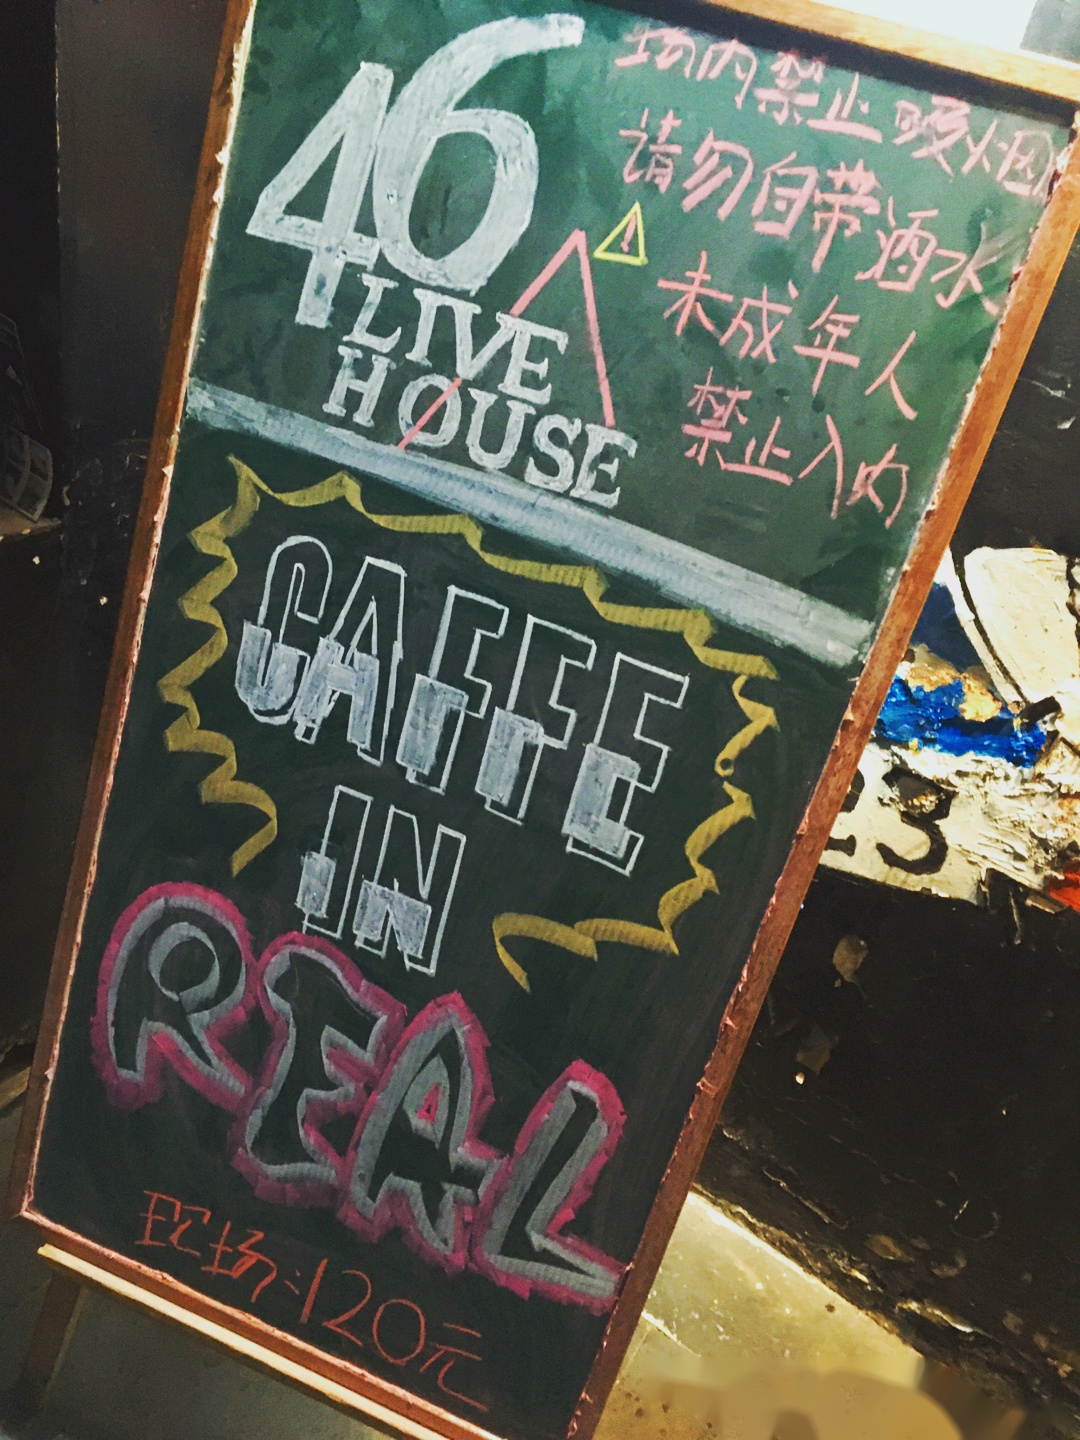 46
LIVE
HOUSE
场内禁止吸烟
请勿自带酒水
未成年人
禁止入内
CAFFE
IN
REAL
现场:120元
23